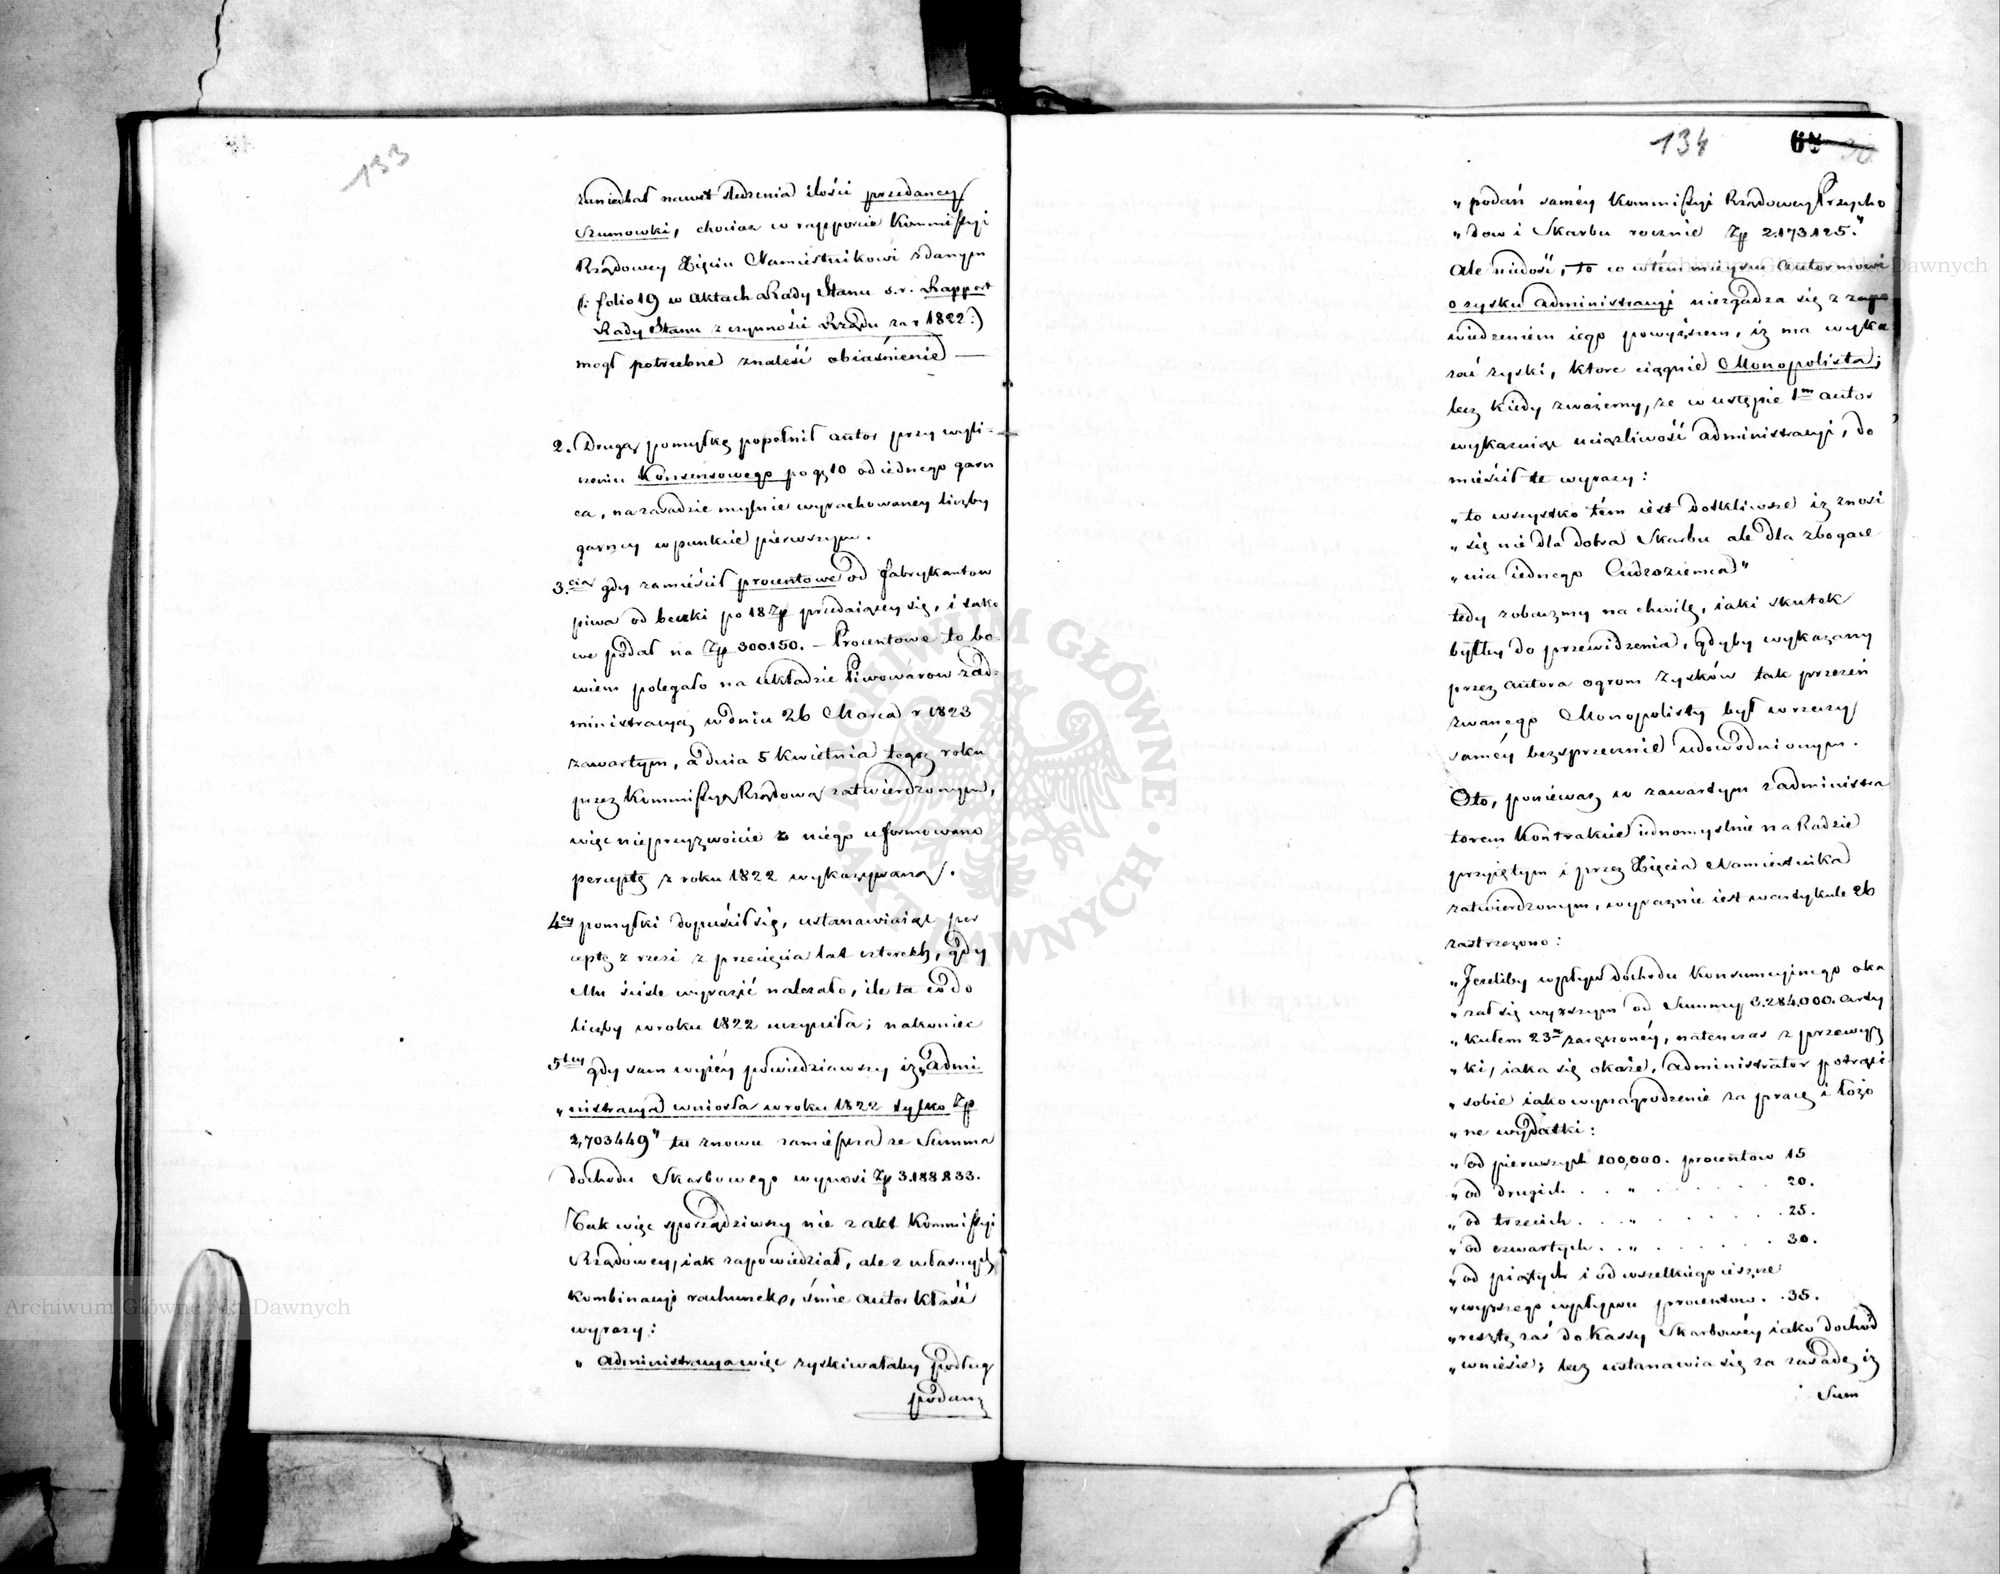 133
zaniedbał nawet śledzenia ilości przedaney
Szumowki, chociaż w rapporcie Kommissyi
Rządowey Xięciu Namiestnikowi zdanym
(: folio 19 w Aktach Rady Stanu s. r. Rapport
Rady Stanu z czynności Rządu za r 1822:)
mogł potrzebne znaleść obiaśnienie —
2. Drugą pomyłkę popełnił autor przy wyli-
czeniu Konsensowego po gr 10 od iednego garn
ca, na zasadzie mylnie wyrachowaney liczby
garncy w punkcie pierwszym.
3.cią gdy zamieścił procentowe od fabrykantow
piwa od beczki po 18 Zp przedaiącey się, i take
we podał na Zp 300.150. — Procentowe to bo-
wiem polegało na układzie Piwowarow z ad-
ministracyą w dniu 26 Marca r 1823
zawartym, a dnia 5 Kwietnia tegoż roku
przez Kommissyą Rządową zatwierdzonym,
więc nieprzyzwoicie z niego uformowano
perceptę z roku 1822 wykazywaną.
4ey pomyłki dopuścił się, ustanawiaiąc per
ceptę z rzezi z przecięcia lat czterech, gdy
Mu ściśle wyrazić należało, ile ta co do
liczby w roku 1822 uczyniła; nakoniec
5tey gdy sam wyżéy powiedziawszy iż „admi
„nistracya wniosła w roku 1822 tylko Zp
2,703449" tu znowu zamieszcza ze Summa
dochodu Skarbowego wynosi Zp 3.188.833.
Tak więc sporządziwszy nie z akt Kommissyi
Rządowey, iak zapowiedział, ale z własnych
kombinacyi rachunek, śmie autor kłaść
wyrazy:
„ administracya więc zyskiwałaby podług
podań
134
„ podań saméy Kommissyi Rządowey Przycho
„ dow i Skarbu rocznie Zp 2.173.125."
Ale niedość, to co w tém mieyscu autor mowi
o zysku administracyi niezgadza się z zapo
wiedzeniem iego powyższem, iż ma wyka
zać zyski, ktore ciągnie Monopolista;
lecz kiedy zważemy, że w ustępie 1m autor
wykazuiąc uciążliwość administracyi, do
mieścił te wyrazy:
„ to wszystko tém iest dotkliwsze iż znosi
„ się nie dla dobra Skarbu ale dla zbogace
„ nia iednego Cudzoziemca"
tedy zobaczmy na chwilę, iaki skutek
byłby do przewidzenia, gdyby wykazany
przez autora ogrom zysków tak przezeń
zwanego Monopolisty był w rzeczy
saméy bezsprzecznie udowodnionym.
Oto, ponieważ w zawartym z administra
torem Kontrakcie iednomyslnie na Radzie
przyiętym i przez Xięcia Namiestnika
zatwierdzonym, wyraznie iest w artykule 26
zastrzeżono:
„ Jeżeliby wpływ dochodu Konsumcyinego oka
„ zał się wyższym od Summy 3.284,000. arty
„ kułem 23m zaręczonéy, natenczas z przewyż
„ ki, iaka się okaże, administrator potrąci
„ sobie iako wynagrodzenie za pracę i łożo
„ ne wydatki:
„ od pierwszych 100,000. procentow 15
„ od drugich . . „ . . . . . . 20.
„ od trzecich . . „ . . . . . . 25.
„ od czwartych . . „ . . . . . . 30.
„ od piątych i od wszelkiego ieszcze
„ wyższego wpływu procentow . . 35.
„ resztę zaś do Kassy Skarbowéy iako dochód
„ wniesie; lecz ustanawia się za zasadę iż
Sum
Archiwum Główne Akt Dawnych
Archiwum Główne Akt Dawnych
ARCHIWUM GŁÓWNE AKT DAWNYCH